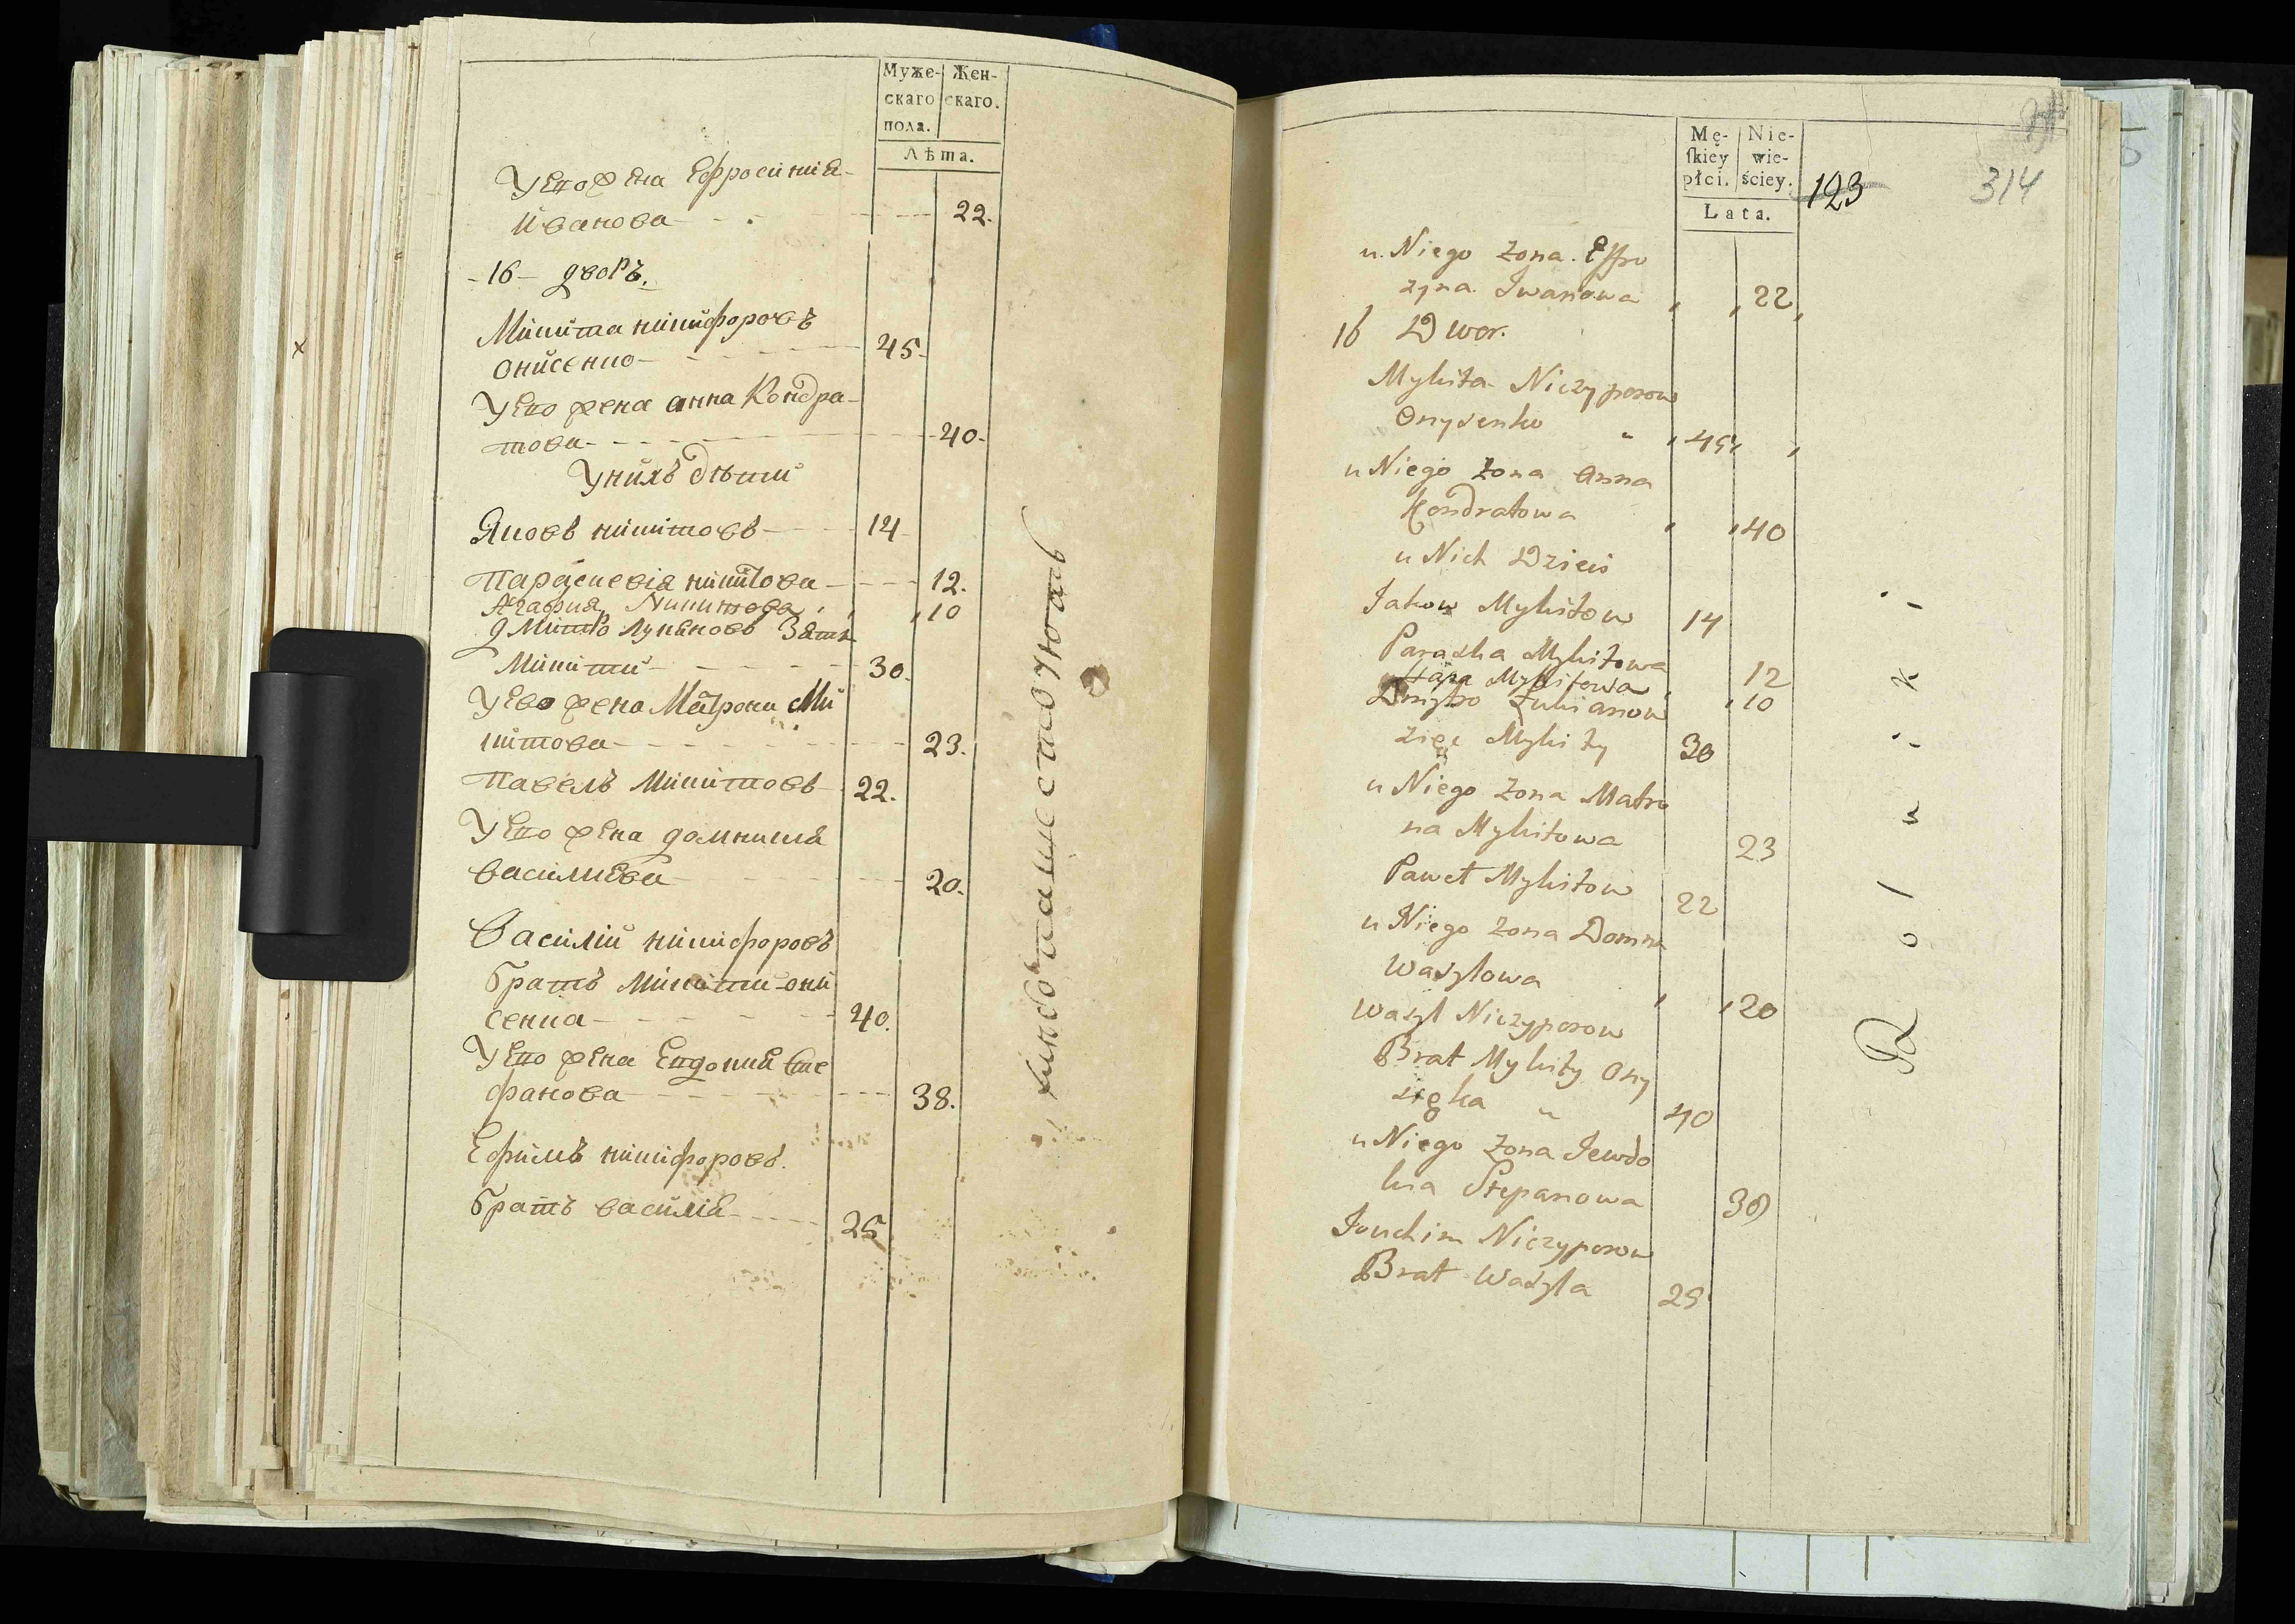 Муже-
скаго
пола.
Жен-
скаго.
Лѣта.
Уего жена Ефросиния
Иванова 22.
-16- дворъ.
Микита никифоровъ
онисенко 45.
Уего жена анна Кондра-
това 40.
Унихъ дѣти
Яковъ никитовъ 14
Параскевія никитова 12.
Агафия Никитова 10
дмитро лукяновъ Зять
Микити 30.
Уево жена Матрона Ми
китова 23.
Павелъ Микитовъ 22.
Уего жена домникия
василиева 20.
Василій никифоровъ
братъ Микити они
сенка 40.
Уего жена Евдокия Сте
фанова 38.
Ефимъ никифоровъ.
братъ василия 25
Mę-
ſkiey
płci.
Nie-
wie-
ściey.
Lata.
123
314
u Niego żona Effro
zyna Iwanowa 22
16 Dwor.
Mykita Niczyporow
Onysenko 45
u Niego żona Anna
Kondratowa 40
u Nich Dzieci
Jakow Mykitow 14
Paraska Mykitowa 12
Hapa Mykitowa 10
Dmytro Łukianow
zięć Mykity 30
u Niego żona Matro
na Mykitowa 23
Paweł Mykitow 22
u Niego żona Domna
Wasylowa 20
Wasyl Niczyporow
Brat Mykity Ony
sięka 40
u Niego żona Jewdo
kia Stepanowa 38
Jouchim Niczyporow
Brat Wasyla 25